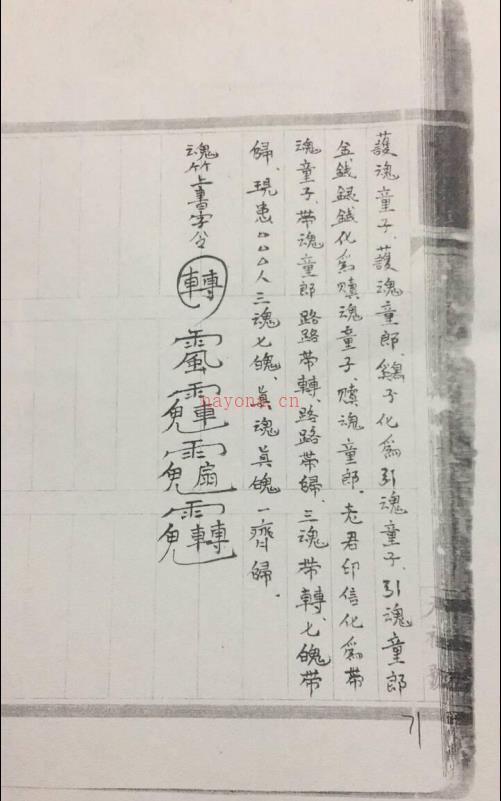 護魂童子、護魂童郎、鷄子化為引魂童子、引魂童郎
金銭銀銭化為贖魂童子、贖魂童郎.老君印信化為帶
魂童子、帶魂童郎.路路帶轉、路路帶歸、三魂帶轉、七魄帶
歸、現患△△△人三魂七魄、真魂真魄一齊歸.
魂竹上書字令
轉
71
nayona.cn